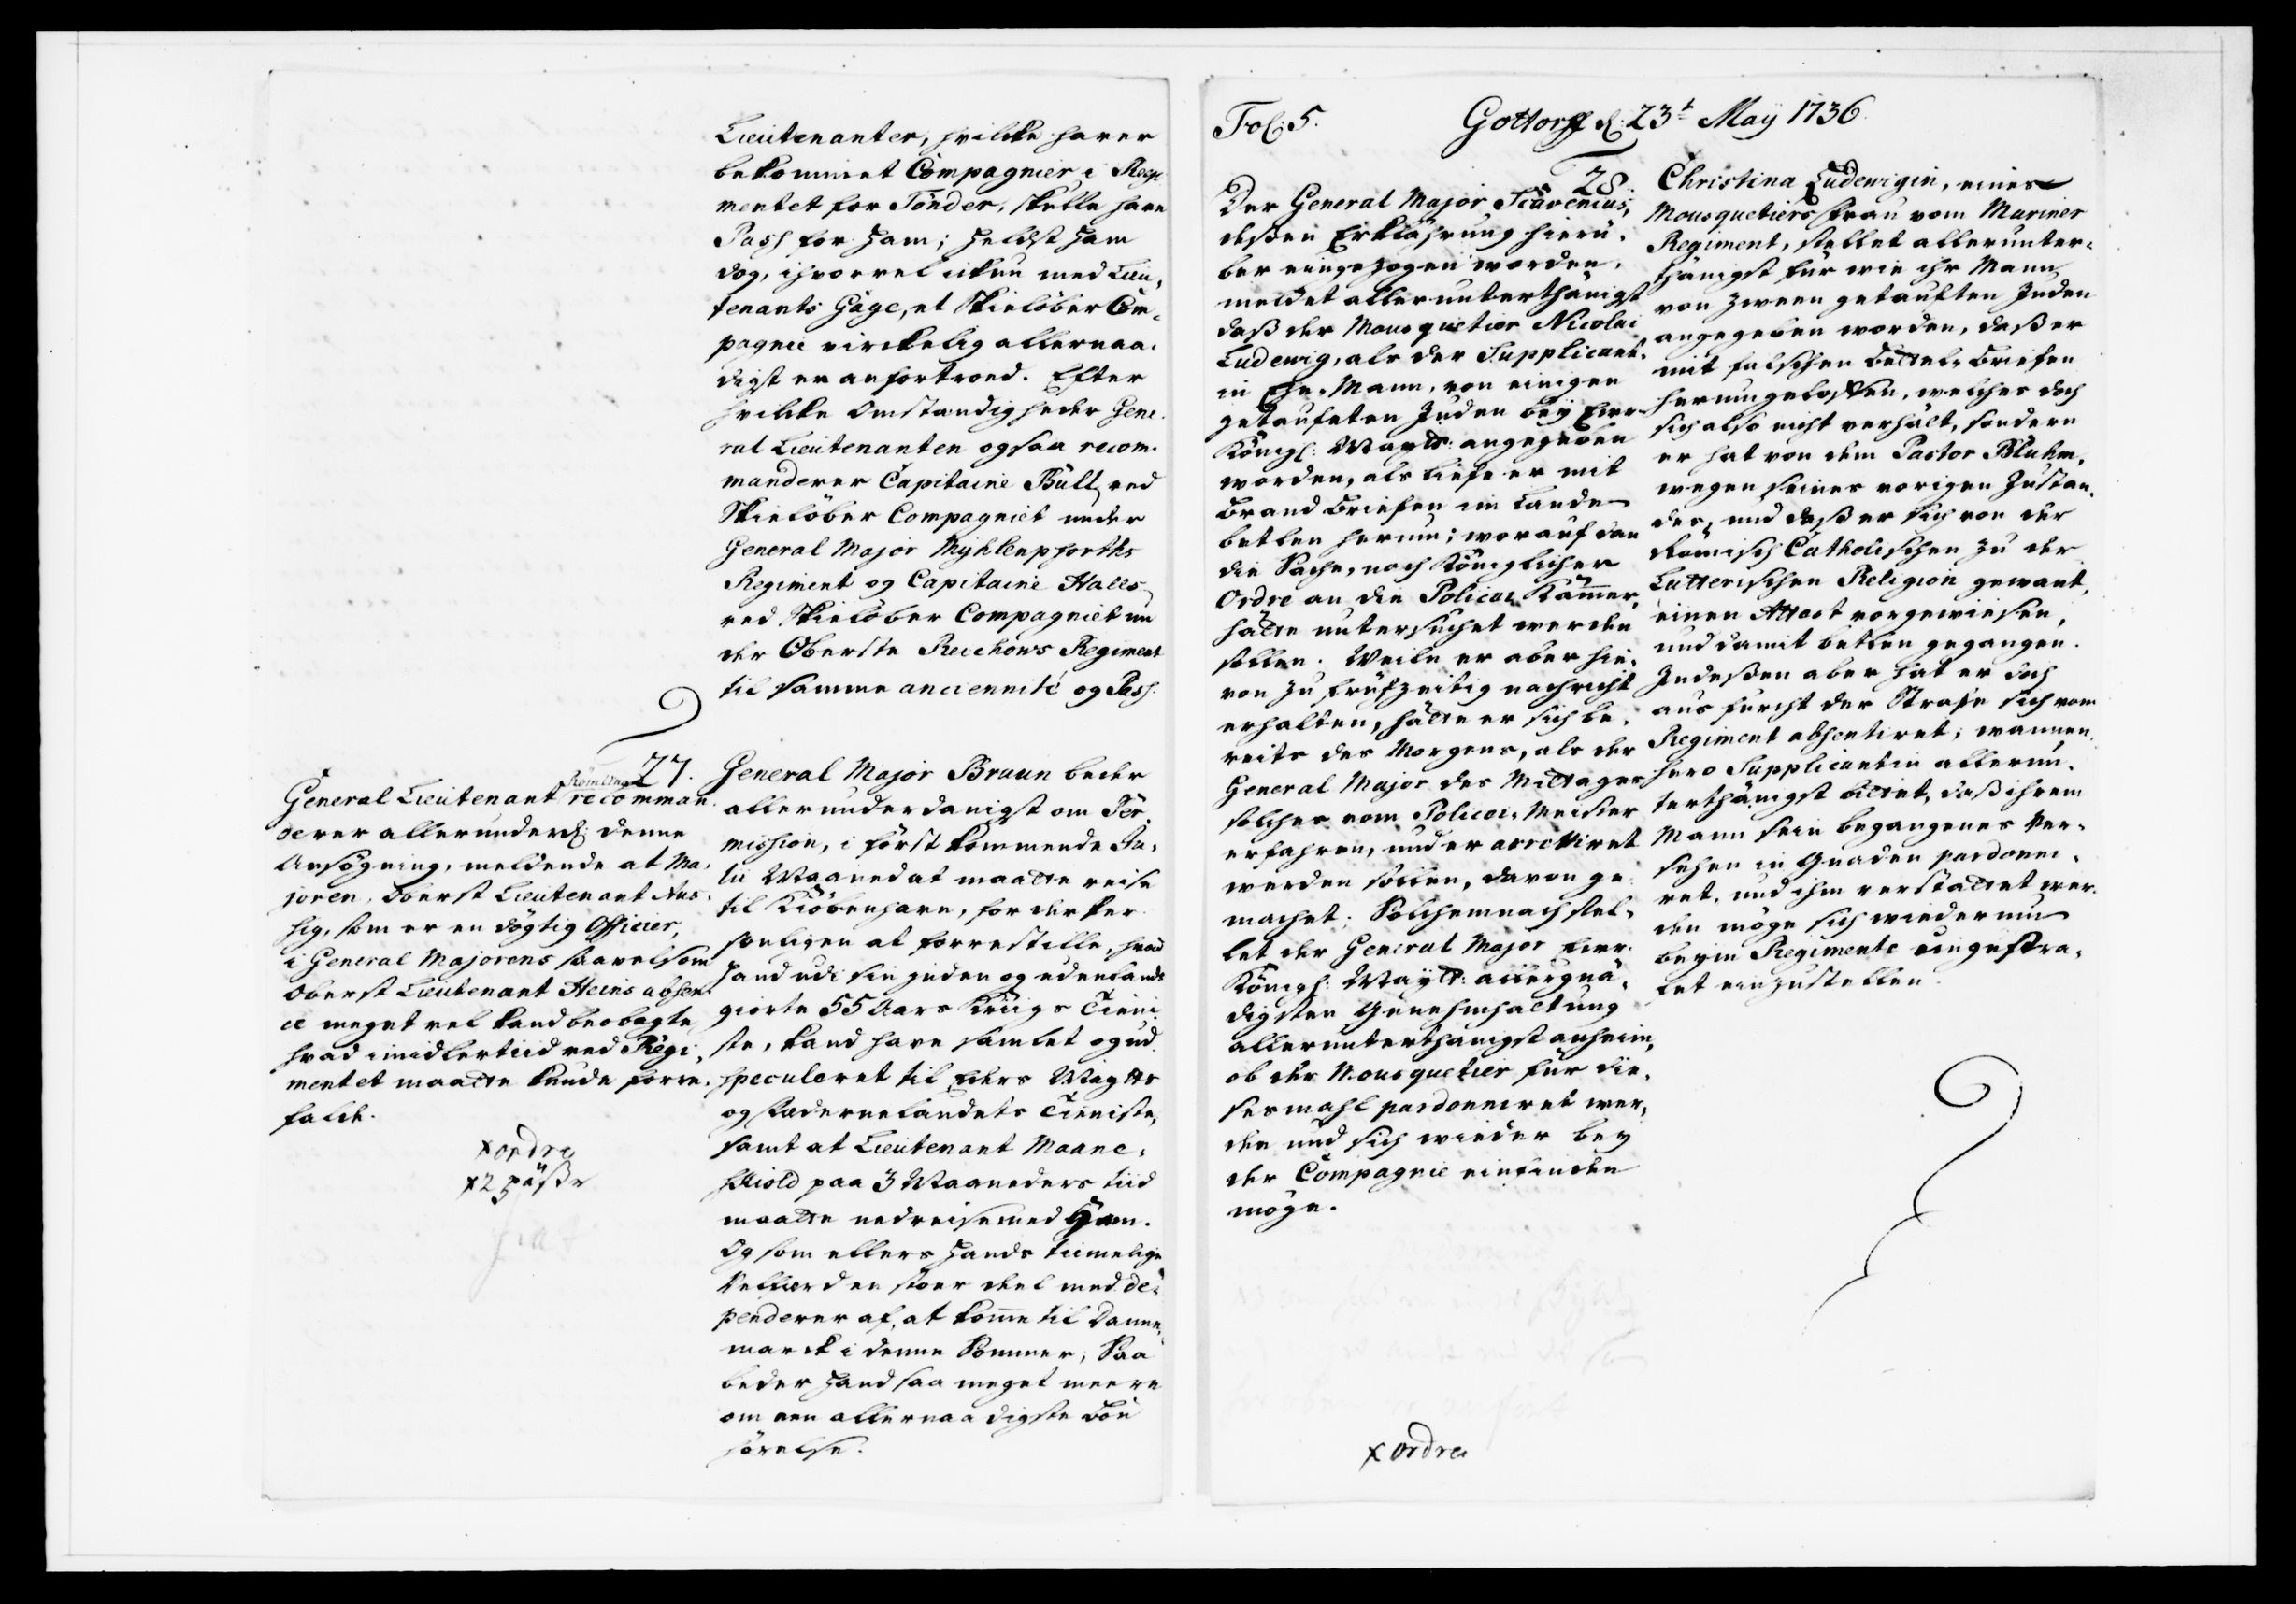 Lieutenanter, hvilcke haver
bekommet Compagnier i Regi
mentet for Tönder, skulle have
Pass for ham; heldst ham
dog, ihvorvel ickun med Lieu-
tenants Gage, et Skielöber Com-
pagnie virckelig allernaa-
digst er anfortroed. Efter
hvilcke Omstændigheder Gene-
ral Lieutenanten ogsaa recom-
manderer Capitaine Büll, ved
Skielöber Compagniet under
General Major Myhlenpforths
Regiment og Capitaine Halls,
ved Skielöber Compagniet un
der Oberste Reichows Regiment
til samme anciennité og Pass.
27.
General Lieutenant Römling recomman-
derer allerunderd: denne
Ansögning, meldende at Ma-
joren, Oberst Lieutenant Aus-
sig, som er en dögtig Officier,
i General Majorens saavelsom
Oberst Lieutenant Heins absen-
ce meget vel kand beobagte,
hvad imidlertiid ved Regi-
mentet maatte kunde forre-
falde.
x ordre
x 2 päße
fiat
General Major Braun beder
allerunderdanigst om Per-
mission, i först kommende Ju-
lii Maaned at maatte reise
til Kiöbenhavn, for der per-
sonligen at forrestille, hvad
hand udi sin inden og udenlands
giorte 55 Aars Krigs Tieni-
ste, kand have samlet og ud-
speculeret til Eders Mayts
og Fædernelandets Tieniste,
samt at Lieutenant Maane-
skiold paa 3 Maaneders tiid
maatte nedreise med Ham.
Og som ellers hands timelige
Velfærd en stoer deel med de-
penderer af, at komme til Danne-
marck i denne Sommer, Saa
beder hand saa meget meere
om een allernaadigste Bön
hörelse.
Fol: 5. Gottorff d: 23t May 1736.
28.
Der General Major Scavenius,
deßen Erklährung hierü-
ber eingezogen worden,
meldet allerunterthänigst
daß der Mousquetier Nicolai
Ludewig, als der Supplicant-
in Ehe-Mann, von einigen
getaufeten Juden bey Ewr
Königl: Maytt: angegeben
worden, als liefe er mit
Brand Briefen im Lande
betlen herum; worauf dan
die Sache, nach Königlicher
Ordre an die Policei Kammer,
hätte untersuchet werden
sollen. Weile er aber hie-
von zu frühzeitig nachricht
erhalten, hätte er sich be-
reits des Morgens, als der
General Major des Mittages
solches vom Policei-Meister
erfahren, und er arretiret
werden sollen, davon ge-
machet. Solchemnach stel-
let der General Major Ewr.
Königl: Maytt: allergnä-
digsten Genehmhaltung
allerunterthänigst anheim,
ob der Mousquetier für die-
sesmahl pardonniret wer-
den und sich wieder bey
der Compagnie einfinden
möge.
x ordre
Christina Ludewigin, eines
Mousquetiers Frau vom Mariner
Regiment, stellet allerunter-
thänigst für wie ihr Mann
von zween getauften Juden
angegeben worden, daß er
mit falschen Bettel-Briefen
herumgeloffen, welches doch
sich also nicht verhält, sondern
er hat von dem Pastor Bluhm,
wegen seines vorigen Zustan-
des, und daß er sich von der
Römisch Catholischen zu der
Lutterischen Religion gewant,
einen Attest vorgewiesen,
und damit betlen gegangen.
Indeßen aber hat er doch
aus furcht der Strafe sich vom
Regiment absentiret; wannen-
hero Supplicantin allerun-
terthänigst bittet, daß ihrem
Mann sein begangenes Ver-
sehen in Gnaden pardonni-
ret, und ihm verstattet wer-
den möge sich wiederum
beym Regimente ungestra-
fet einzustellen.